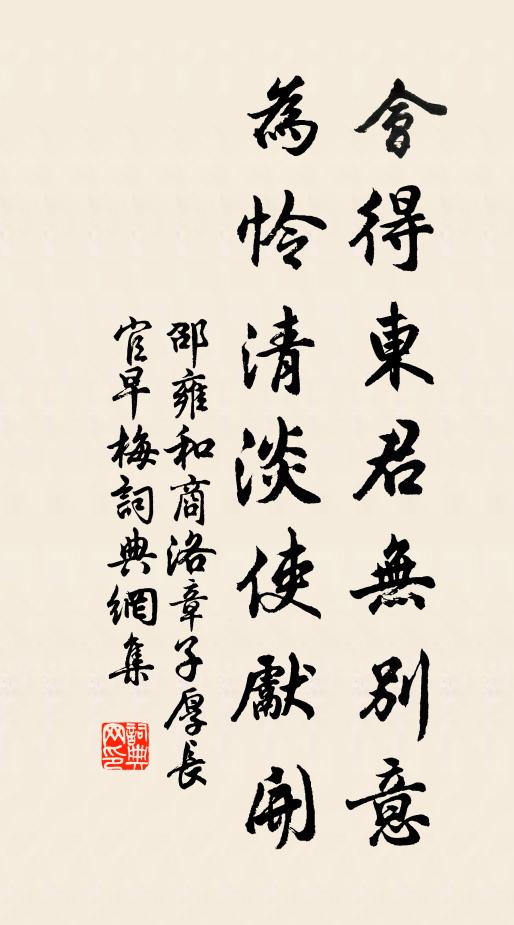 會得東君無別意
為怜清淡使獻開
邵雍和商洛章子厚長
官早梅詞典網集
詞典网印